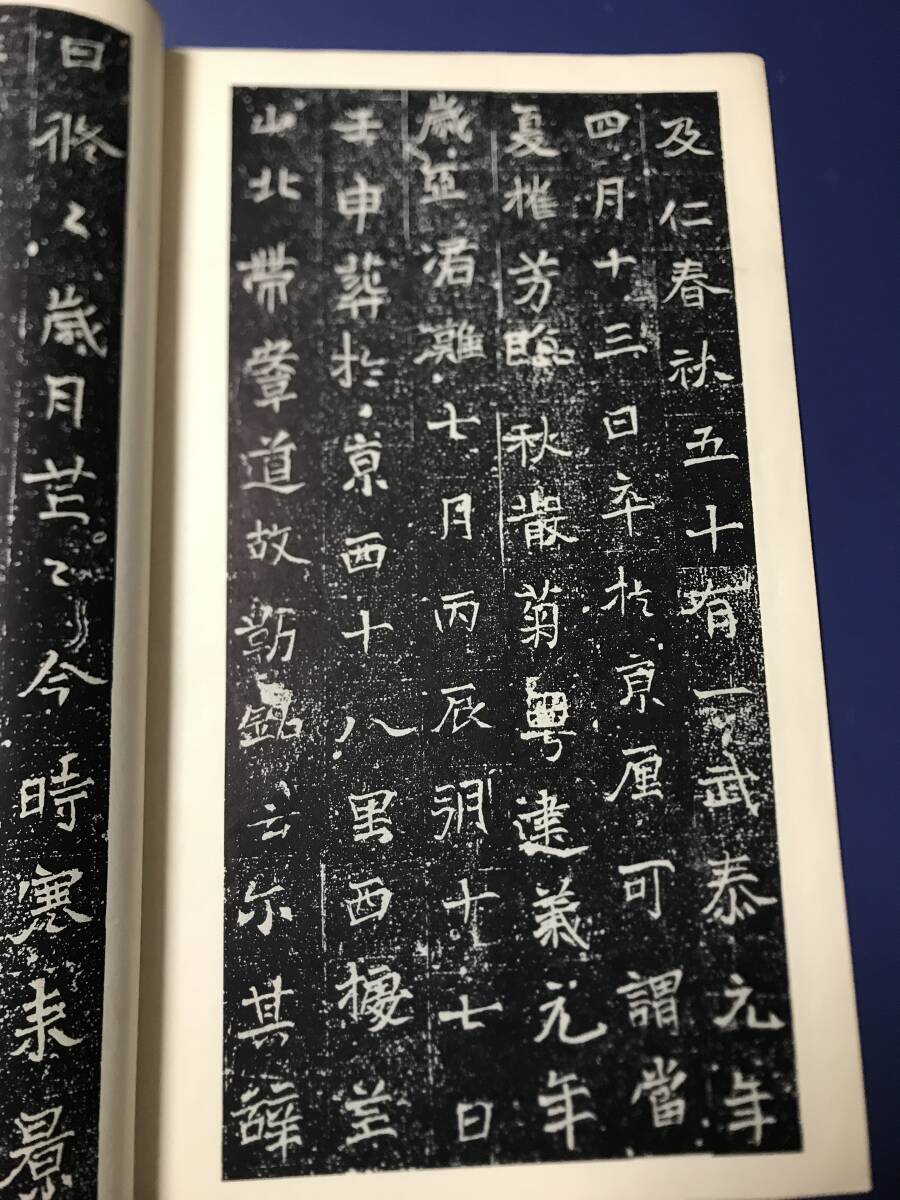 及仁春秋五十有一武泰元年
四月十三日卒於京厘可謂當
夏摧芳臨秋叢菊粤建義元年
歲亞涒灘七月丙辰朔十七日
壬申葬於京西十八里西樓芒
山北帶鞏道故勒銘云尔其辭
曰脩〻歲月芒〻今時寒未景